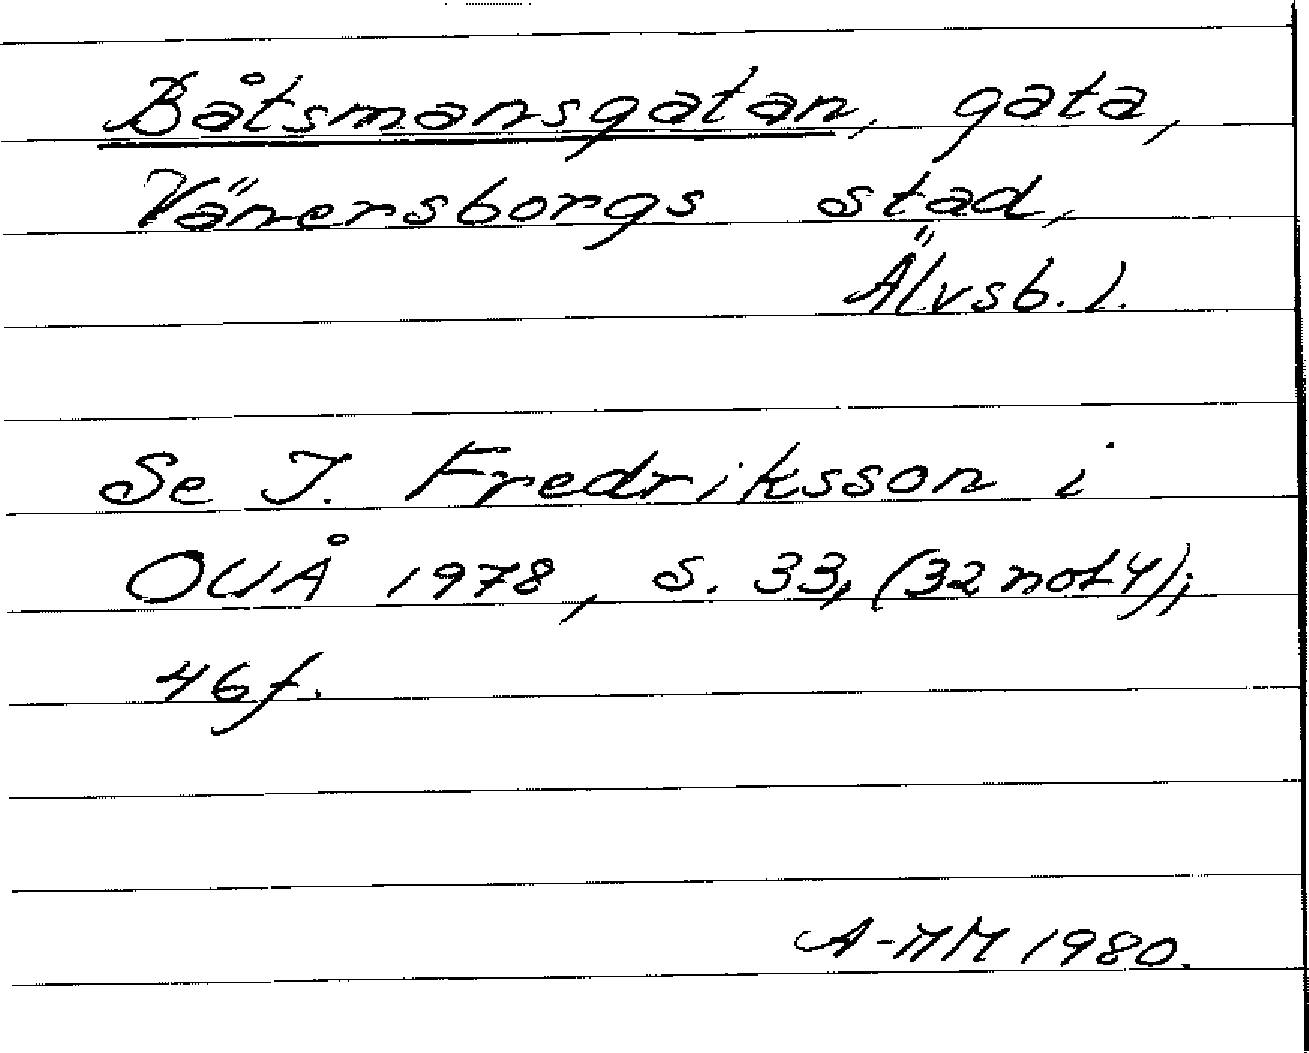 Båtsmansgatan, gata,
Vänersborgs stad,
Älvsb. l.
Se I. Fredriksson i
OUÅ 1978, s. 33, (32 not 4);
46 f.
A-MM 1980.